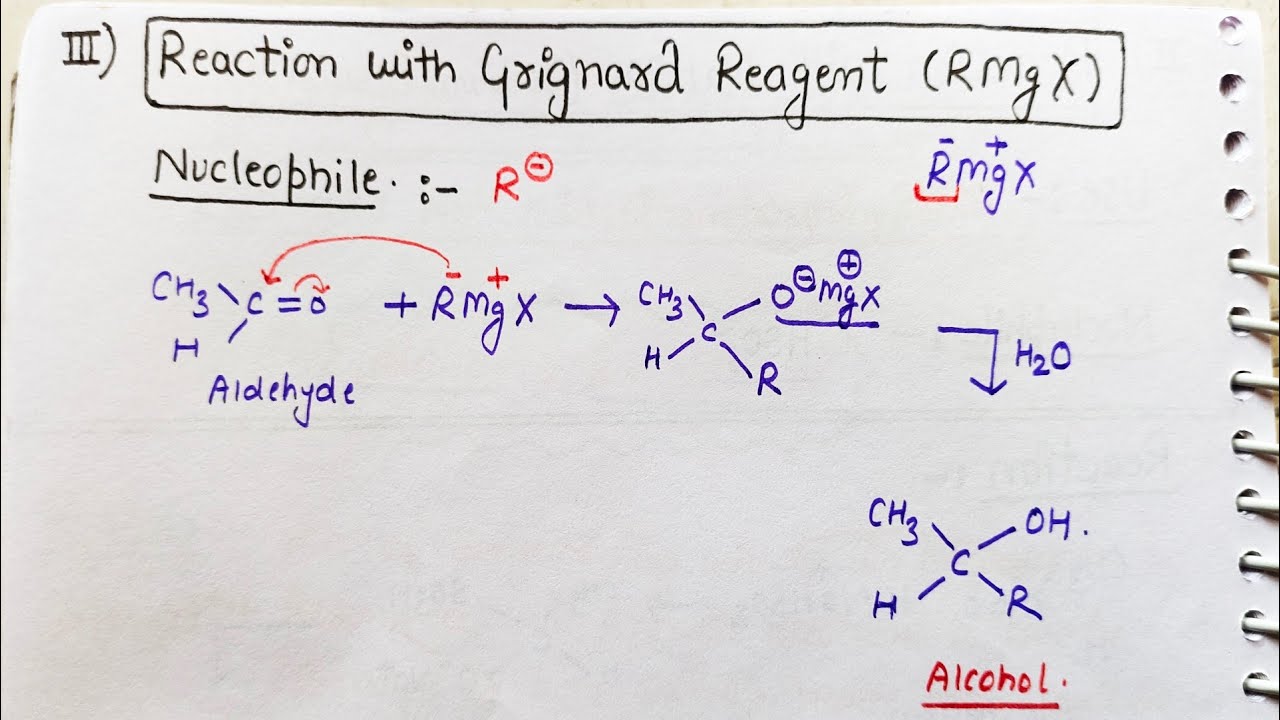 III) Reaction with Grignard Reagent (RMgX)
Nucleophile. :- R⊖
R⁻Mg⁺X
CH3 C=O H + R⁻Mg⁺X → CH3 C O⊖ Mg⊕X H R
H2O
Aldehyde
CH3 C OH. H R
Alcohol.